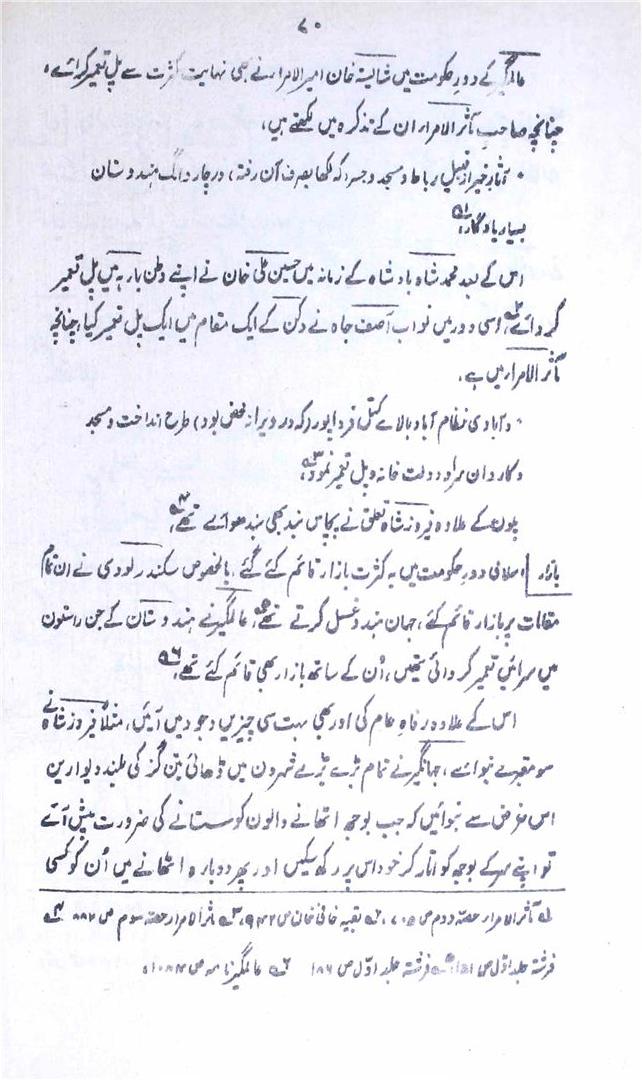 ۷۰
عالمگیر کے دور حکومت میں شایستہ خان امیر الامرار نے بھی نہایت کثرت سے پل تعمیر کرائے،
چنانچہ صاحب مآثر الامرار ان کے تذکرہ میں لکھتے ہیں،
" آثار خیر از قبیل رباط و مسجد و جسر (کہ لکھا بصرف آن رفتہ) در چار دانگ ہندوستان
بسیار یادگار،
اس کے بعد محمد شاہ بادشاہ کے زمانہ میں حسین علی خان نے اپنے وطن بارہہ میں پل تعمیر
کروائے، اسی دور میں نواب آصف جاہ نے دکن کے ایک مقام میں ایک پل تعمیر کیا، چنانچہ
مآثر الامرار میں ہے،
" و آبادی نظام آباد بالاے کتل فردا پور (کہ در ویرانہ محض بود) طرح انداخت و مسجد
و کاروان سرا و دولت خانہ و پل تعمیر نمود،
پلون کے علاوہ فیروز شاہ تغلق نے پچاس بند بھی بندھوائے تھے،
بازار اسلامی دور حکومت میں بہ کثرت بازار قائم کئے گئے، بالخصوص سکندر لودی نے ان تمام
مقامات پر بازار قائم کئے، جہان ہندو غسل کرتے تھے، عالمگیر نے ہندوستان کے جن راستون
میں سرائیں تعمیر کروائی تھیں، اُن کے ساتھ بازار بھی قائم کئے تھے،
اس کے علاوہ رفاہِ عام کی اور بھی بہت سی چیزیں وجود میں آئیں، مثلاً فیروز شاہ نے
سو مقبرے بنوائے، جہانگیر نے تمام بڑے بڑے شہرون میں ڈھائی تین گز کی بلند دیوارین
اس غرض سے بنوائیں کہ جب بوجھ اٹھانے والون کو سستانے کی ضرورت پیش آئے
تو اپنے سر کے بوجھ کو اتار کر خود اس پر رکھ سکیں اور پھر دوبارہ اٹھانے میں اُن کو کسی
۱؎ مآثر الامرار حصہ دوم ص ۷۰۵، ۲؎ بقیہ خافی خان ص ۹۴۲، ۳؎ مآثر الامرار حصہ سوم ص ۸۸۲ ۴؎
فرشتہ جلد اوّل ص ۱۵۱، ۵؎ فرشتہ جلد اوّل ص ۱۸۶ ۶؎ عالمگیر نامہ ص ۱۰۸۴،